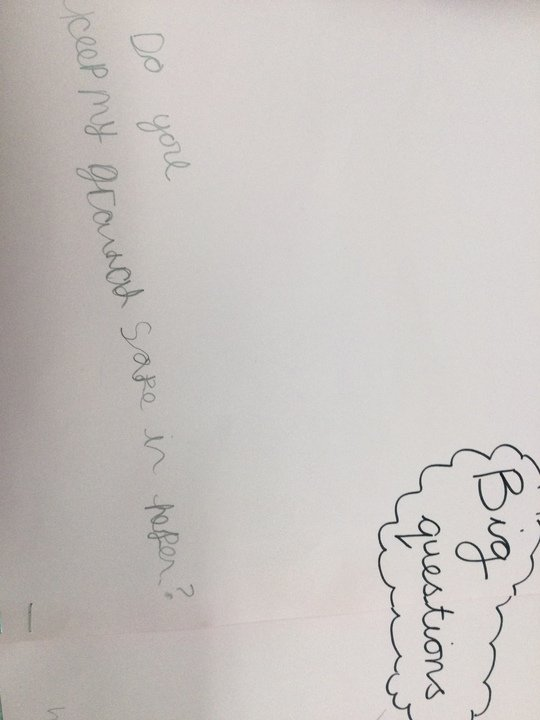 Big
questions
Do you
keep my grandad safe in hefen?